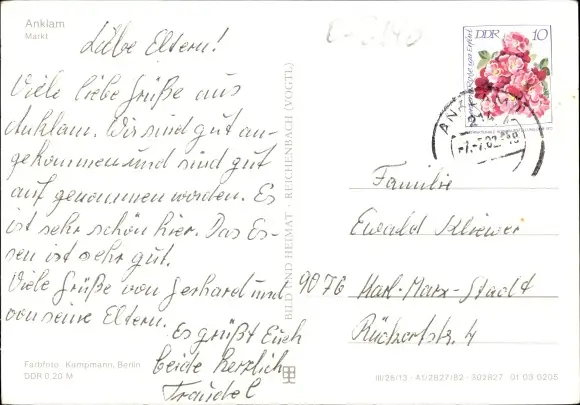 Anklam
Markt
Liebe Eltern!
Viele liebe Grüße aus
Anklam. Wir sind gut an-
gekommen und sind gut
auf genommen worden. Es
ist sehr schön hier. Das Es-
sen ist sehr gut.
Viele Grüße von Gerhard und
von seine Eltern.
Es grüßt Euch
beide herzlich
Traudel
Farbfoto Kampmann, Berlin
DDR 0,20 M
BILD UND HEIMAT · REICHENBACH (VOGTL)
DDR 10
Familie
Ewald Kliewer
9076 Karl-Marx-Stadt
Rückertstr. 4
III/26/13 · A1/2B27/82 · 302627 01 03 0205